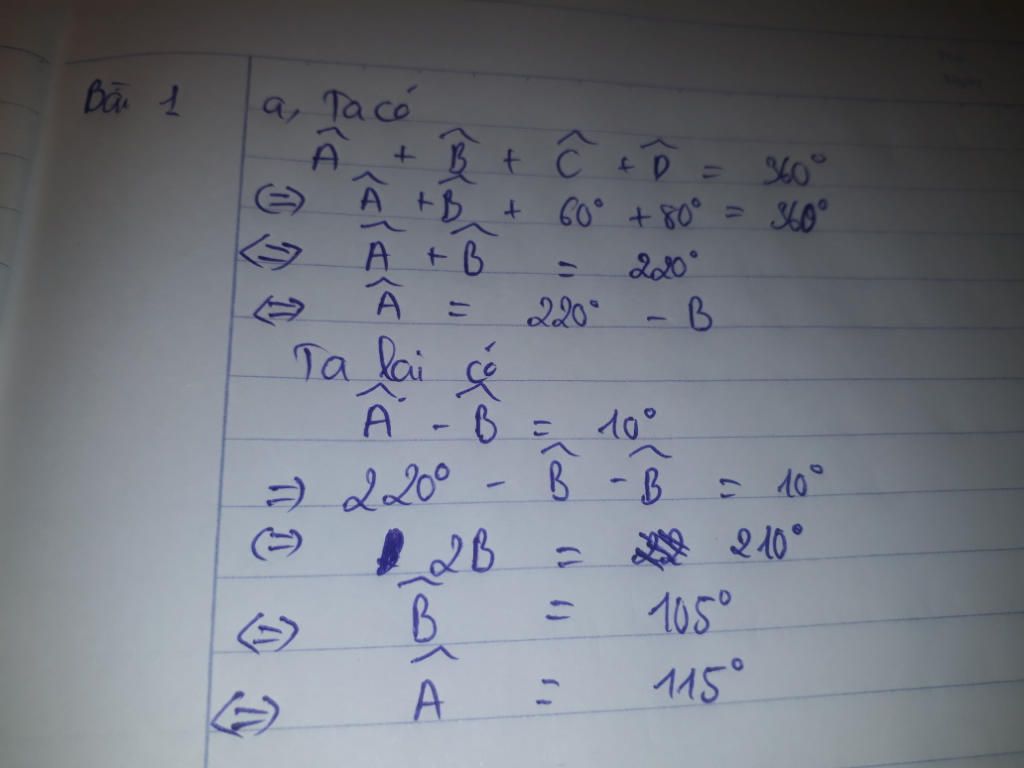 Bài 1
a, Ta có
Â + B̂ + Ĉ + D̂ = 360°
⇔ Â + B̂ + 60° + 80° = 360°
⇔ Â + B̂ = 220°
⇔ Â = 220° - B
Ta lại có
Â - B̂ = 10°
⇒ 220° - B̂ - B̂ = 10°
⇔ 2B = 210°
⇔ B̂ = 105°
⇔ Â = 115°